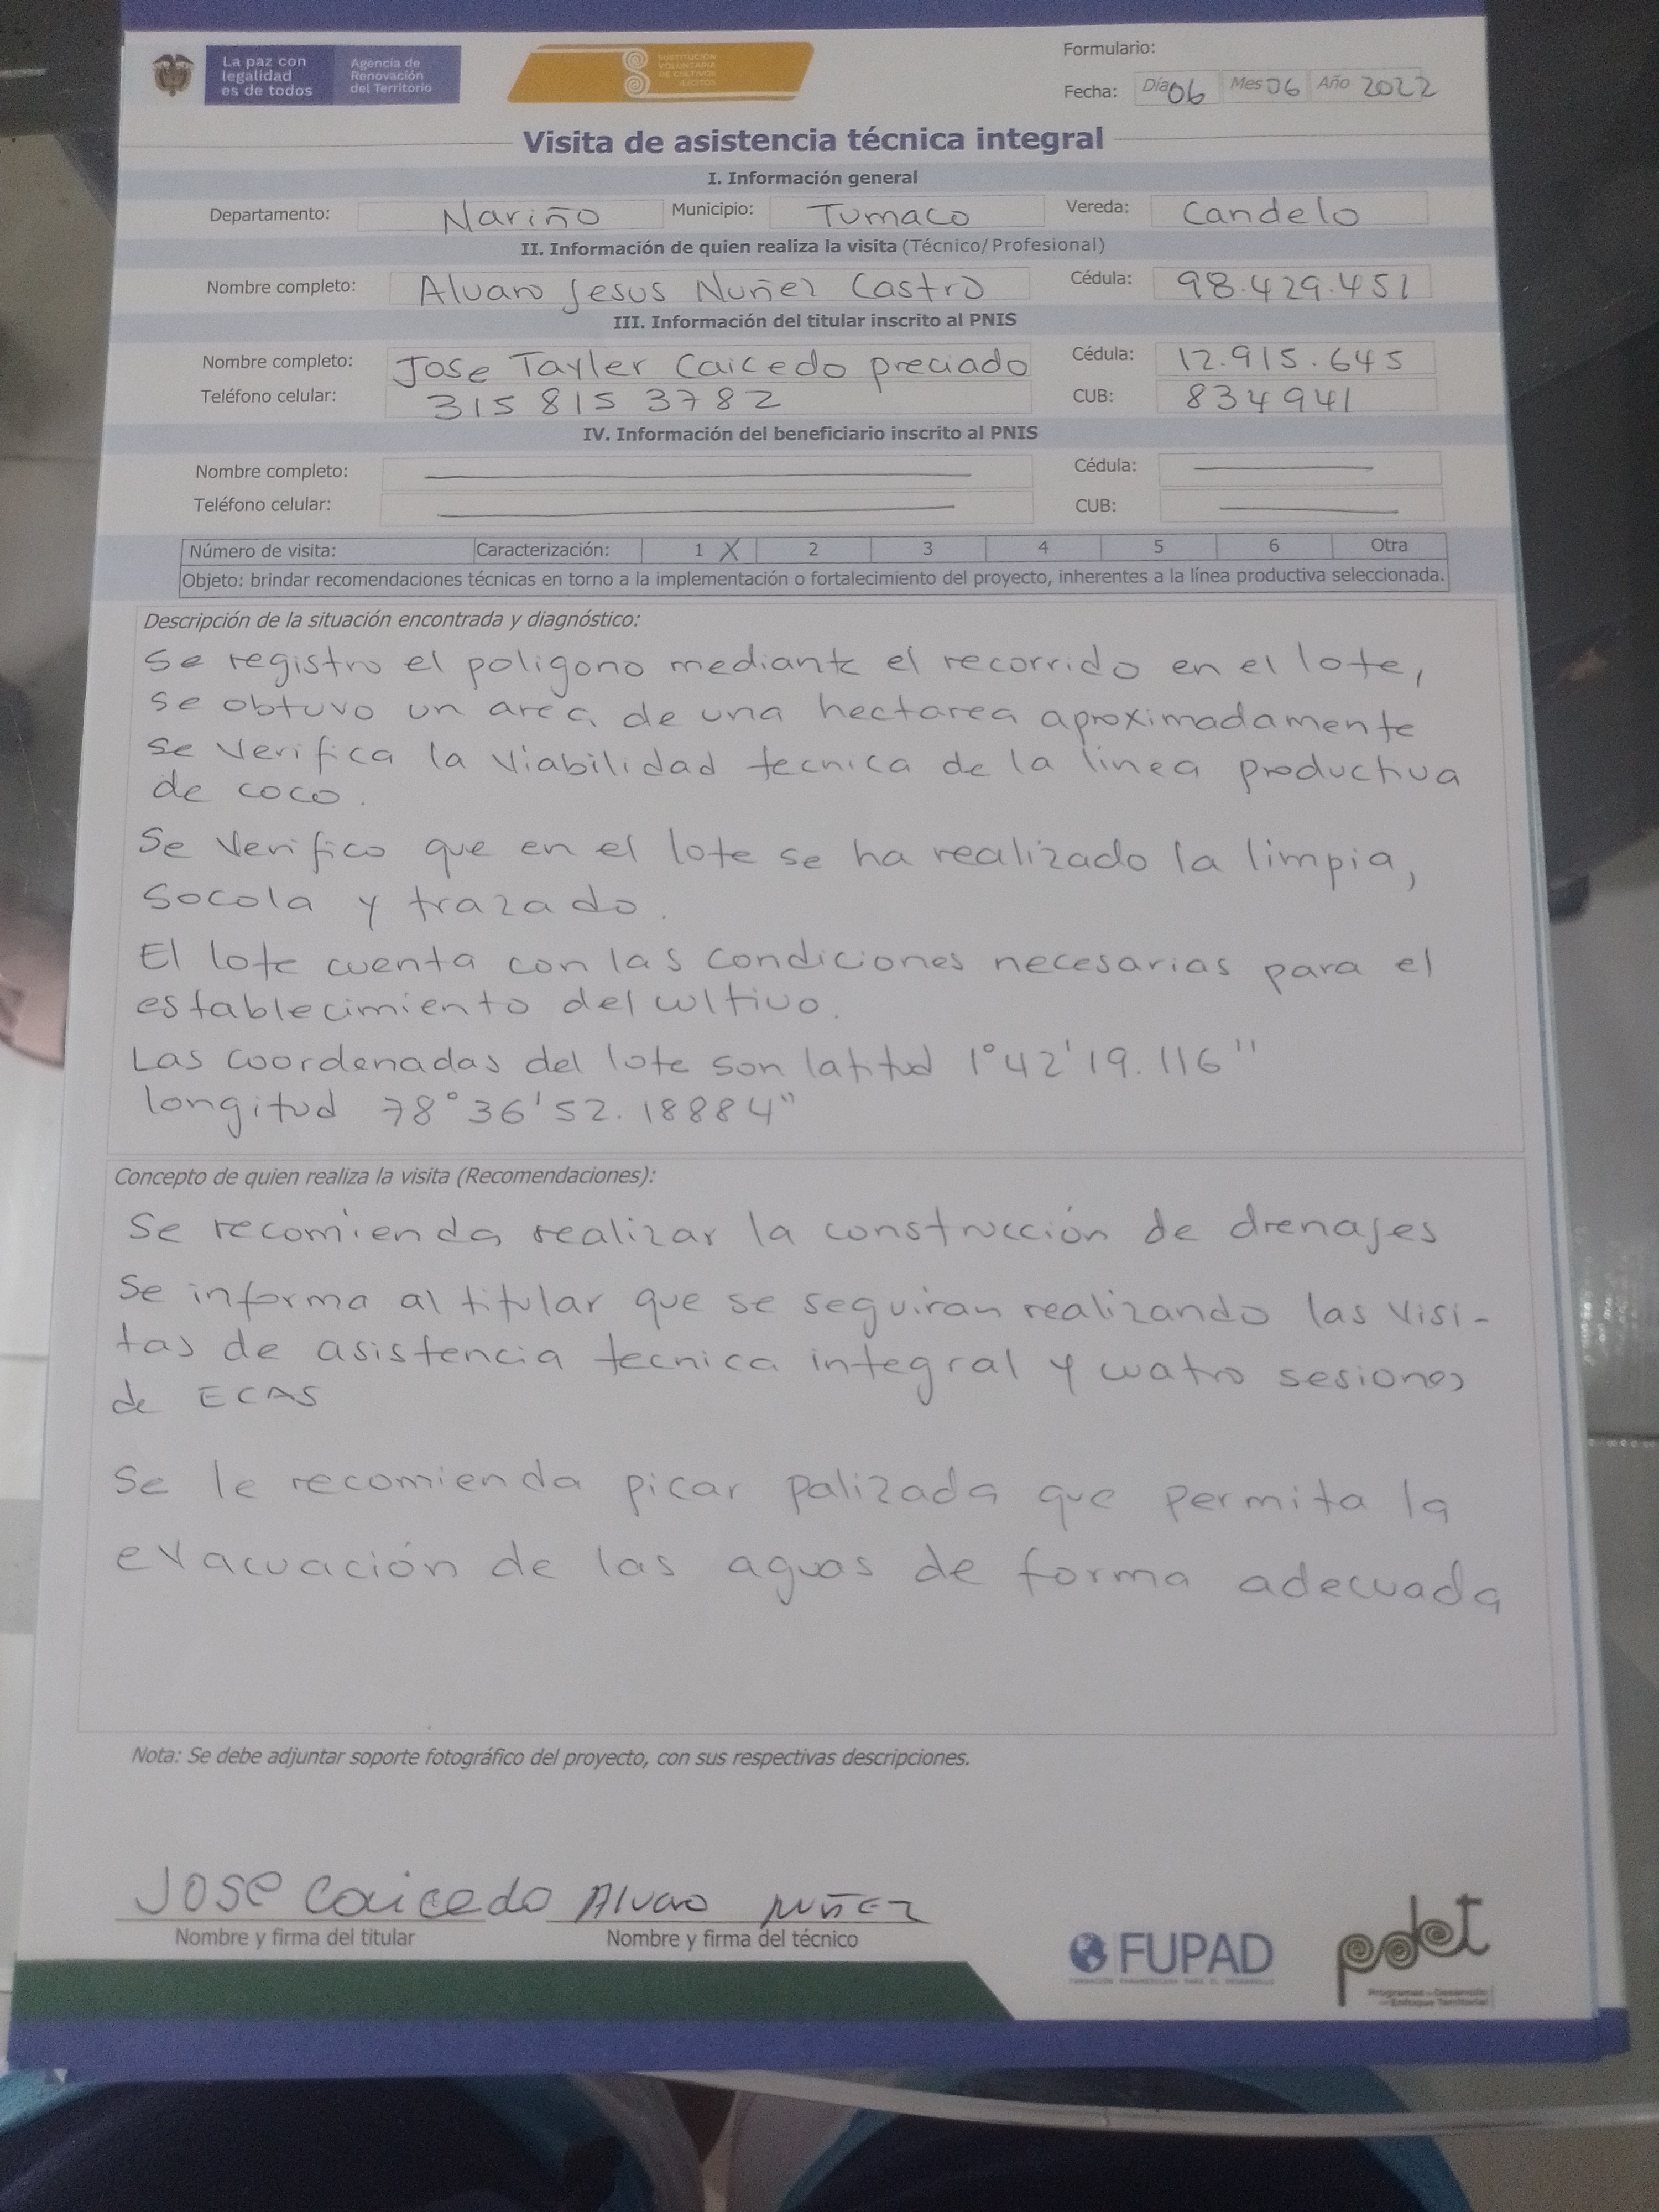 La paz con
legalidad
es de todos
Agencia de
Renovación
del Territorio
SUSTITUCIÓN
VOLUNTARIA
DE CULTIVOS
ILÍCITOS
Formulario:
Fecha: Día 06 Mes 06 Año 2022
Visita de asistencia técnica integral
I. Información general
Departamento: Nariño Municipio: Tumaco Vereda: Candelo
II. Información de quien realiza la visita (Técnico/ Profesional)
Nombre completo: Alvaro Jesus Nuñez Castro Cédula: 98.429.451
III. Información del titular inscrito al PNIS
Nombre completo: Jose Tayler Caicedo preciado Cédula: 12.915.645
Teléfono celular: 315 815 3782 CUB: 834941
IV. Información del beneficiario inscrito al PNIS
Nombre completo: Cédula:
Teléfono celular: CUB:
Número de visita: Caracterización: 1 X 2 3 4 5 6 Otra
Objeto: brindar recomendaciones técnicas en torno a la implementación o fortalecimiento del proyecto, inherentes a la línea productiva seleccionada.
Descripción de la situación encontrada y diagnóstico:
Se registro el poligono mediante el recorrido en el lote,
se obtuvo un area de una hectarea aproximadamente
se verifica la viabilidad tecnica de la linea productiva
de coco.
Se verifico que en el lote se ha realizado la limpia,
socola y trazado.
El lote cuenta con las condiciones necesarias para el
establecimiento del cultivo.
Las coordenadas del lote son latitud 1°42'19.116"
longitud 78°36'52.18884"
Concepto de quien realiza la visita (Recomendaciones):
Se recomienda realizar la construcción de drenajes
Se informa al titular que se seguiran realizando las visi-
tas de asistencia tecnica integral y cuatro sesiones
de ECAS
Se le recomienda picar palizada que permita la
evacuación de las aguas de forma adecuada
Nota: Se debe adjuntar soporte fotográfico del proyecto, con sus respectivas descripciones.
JOSE Caicedo Alvaro NUÑEZ
Nombre y firma del titular Nombre y firma del técnico
FUPAD
FUNDACIÓN PANAMERICANA PARA EL DESARROLLO
pdet
Programas de Desarrollo
con Enfoque Territorial